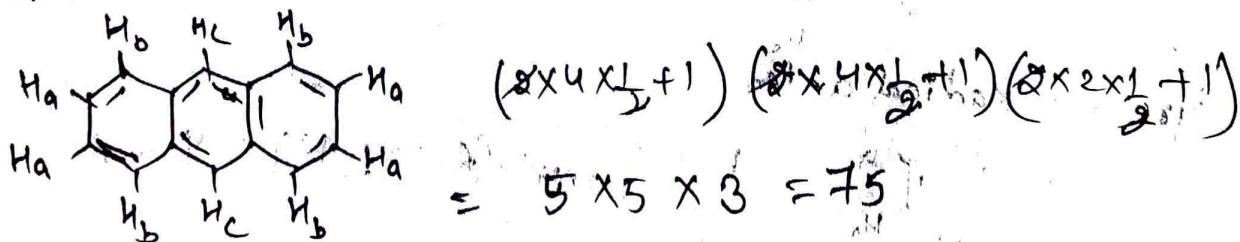 H_b H_c H_b
H_a H_a
H_a H_a
H_b H_c H_b
(2×4×1/2+1) (2×4×1/2+1) (2×2×1/2+1)
= 5×5×3 = 75